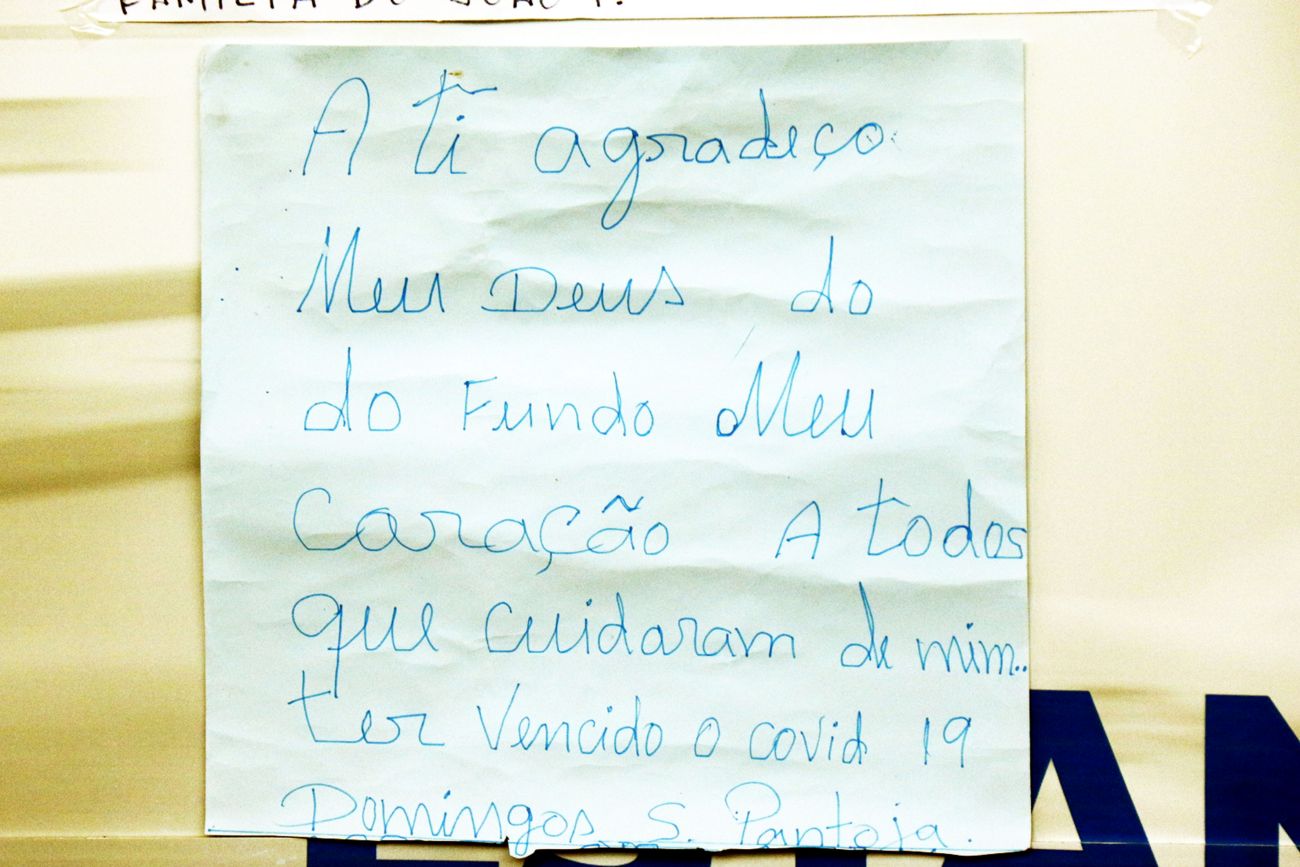 FAMILIA DO JOÃO P.
A ti agradeço
Meu Deus do
do Fundo Meu
Coração A todos
que cuidaram de mim..
ter Vencido o covid 19
Domingos S. Pantoja.